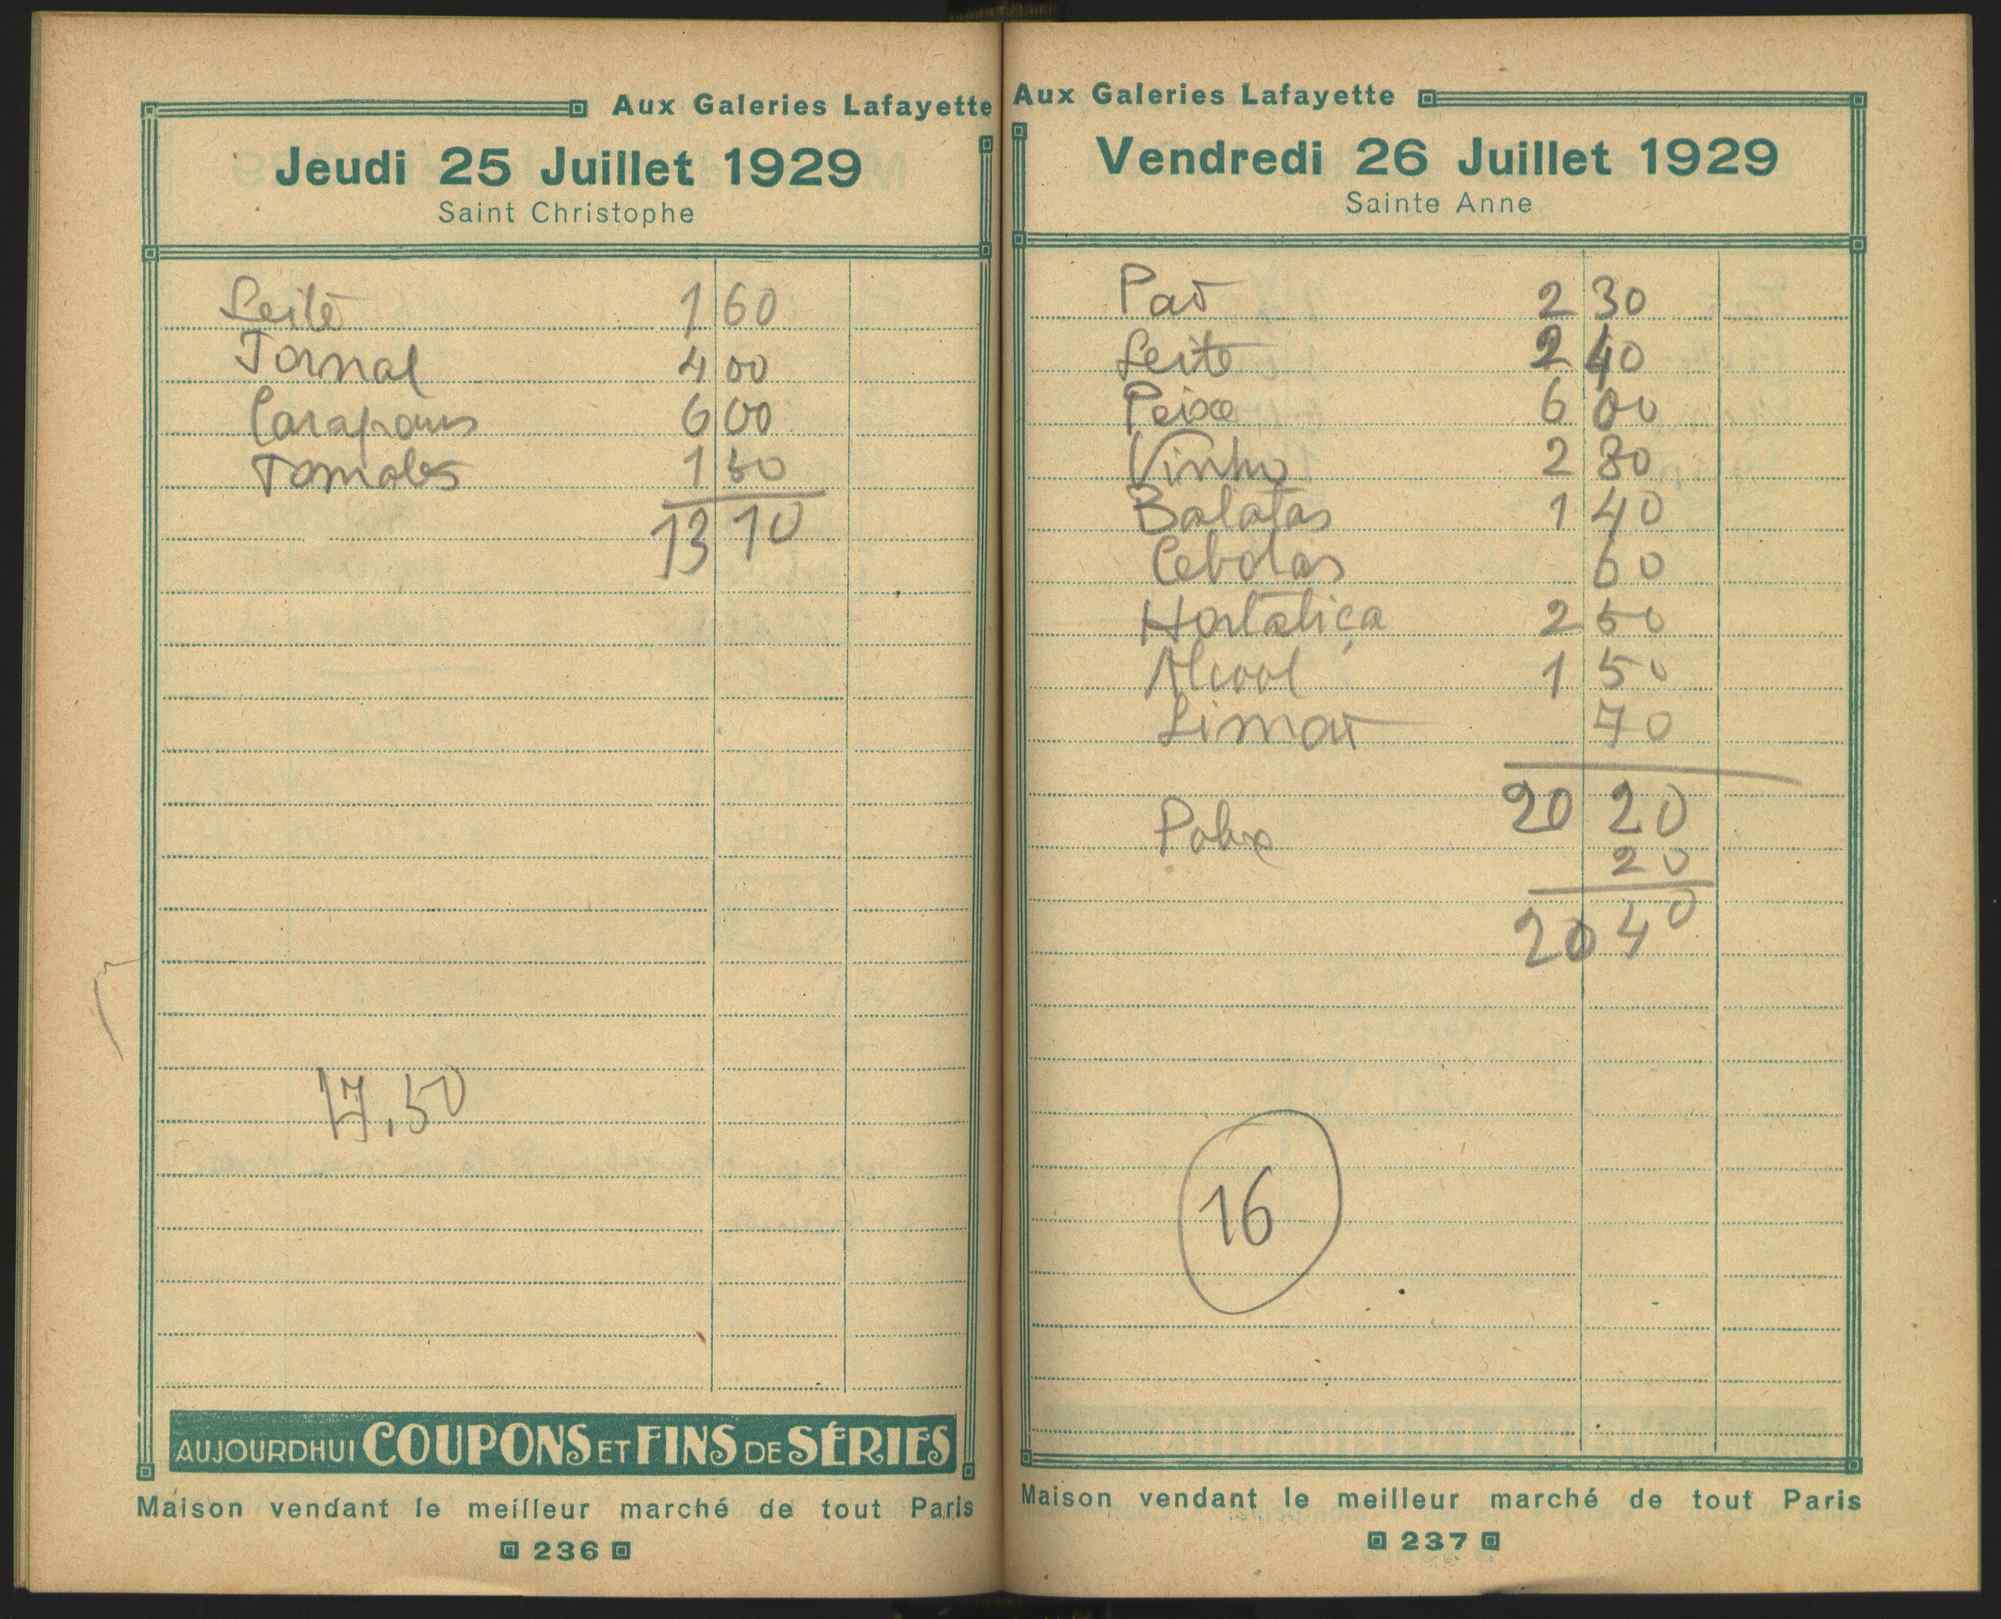 Aux Galeries Lafayette
Jeudi 25 Juillet 1929
Saint Christophe
Leite 1 60
Jornal 4 00
Carapaus 6 00
Tomates 1 50
13 10
17,50
AUJOURDHUI COUPONS ET FINS DE SÉRIES
Maison vendant le meilleur marché de tout Paris
236
Aux Galeries Lafayette
Vendredi 26 Juillet 1929
Sainte Anne
Pão 2 30
Leite 2 40
Peixe 6 00
Vinho 2 80
Batatas 1 40
Cebolas 60
Hortaliça 2 50
Alcool 1 50
Limão 70
20 20
Pobre 20
20 40
16
Maison vendant le meilleur marché de tout Paris
237